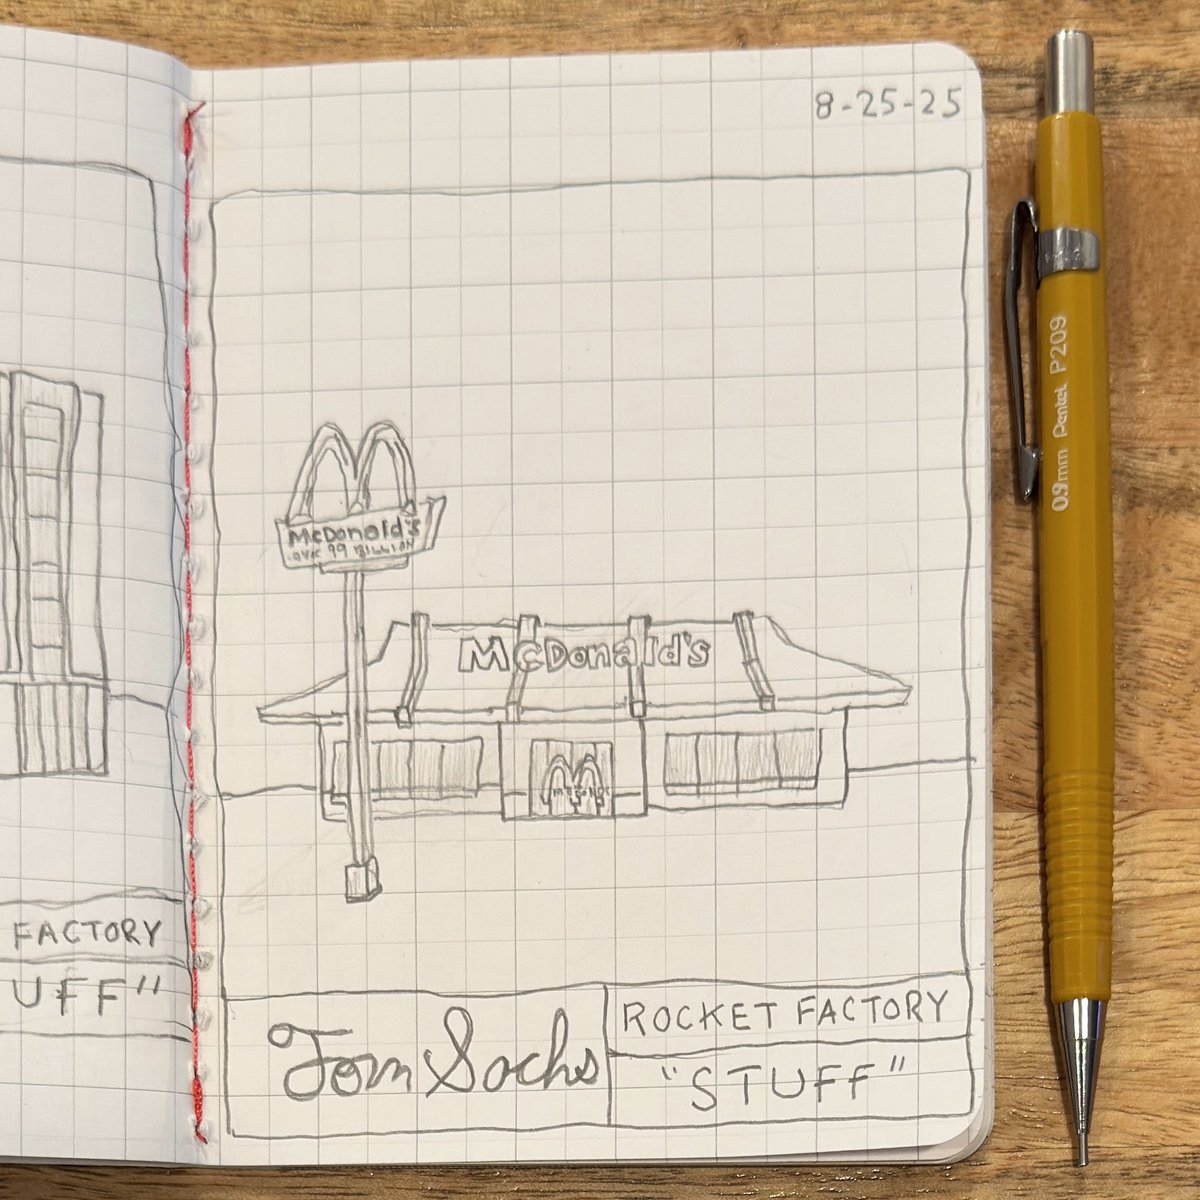 8-25-25
McDonald's
OVER 99 BILLION
McDonald's
FACTORY
UFF"
Tom Sachs
ROCKET FACTORY
"STUFF"
0.9mm Pentel P209